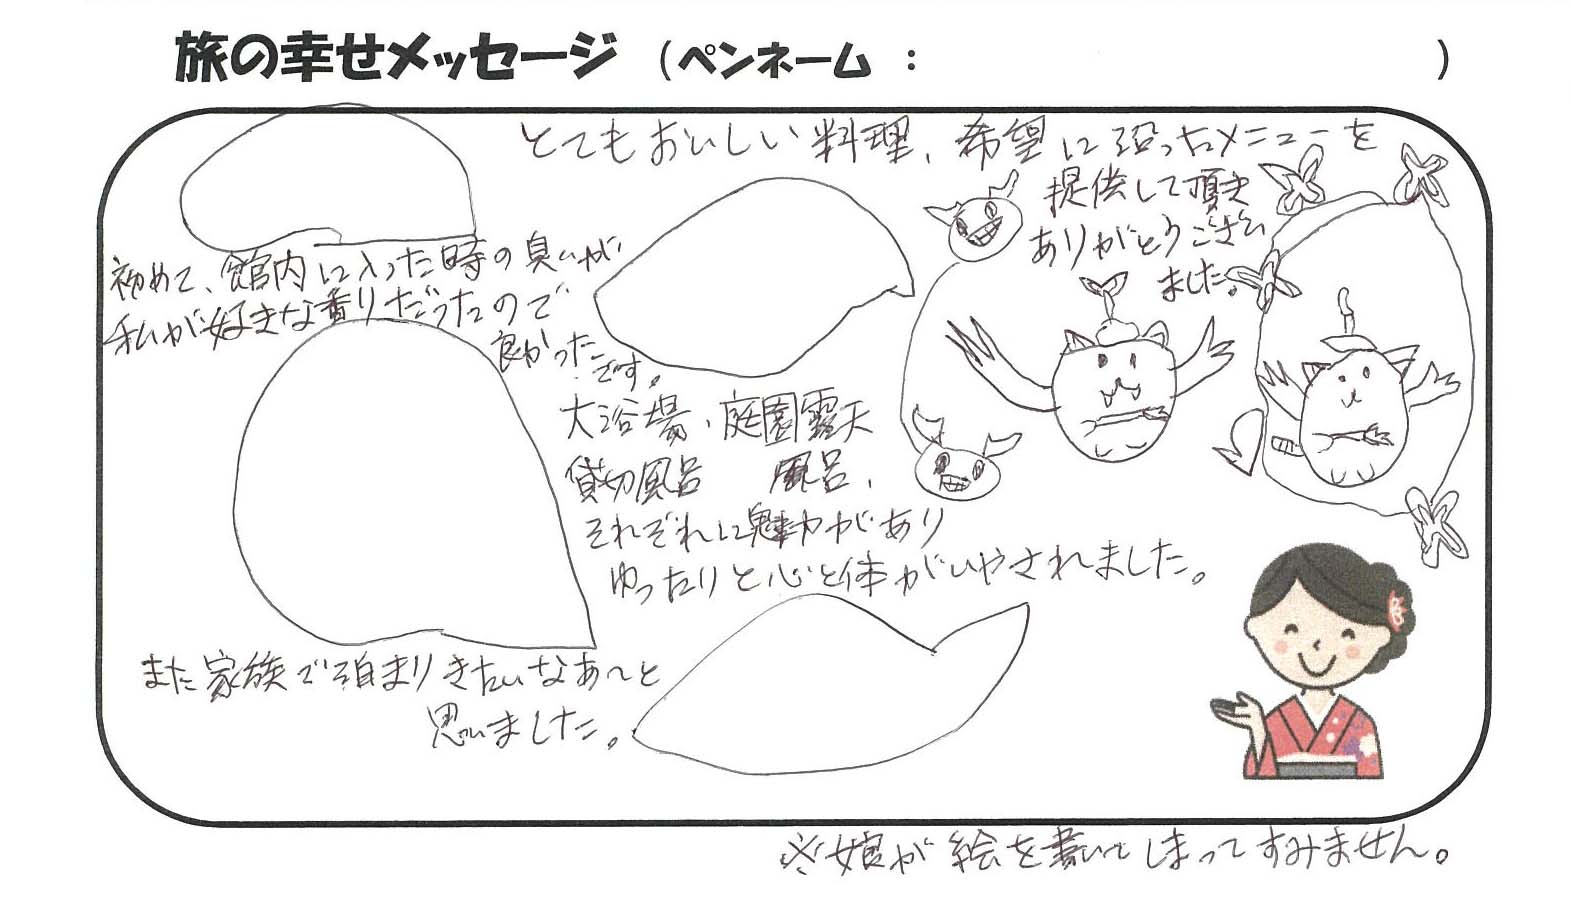 旅の幸せメッセージ (ペンネーム : )
とてもおいしい料理、希望に沿ったメニューを
提供して頂き
ありがとうござい
ました。
初めて、館内に入った時の臭いが
私が好きな香りだったので
良かった
です。
大浴場、庭園露天
貸切風呂 風呂、
それぞれに魅力があり
ゆったりと心と体がいやされました。
また家族で泊まりきたいなあ〜と
思いました。
※娘が絵を書いてしまってすみません。